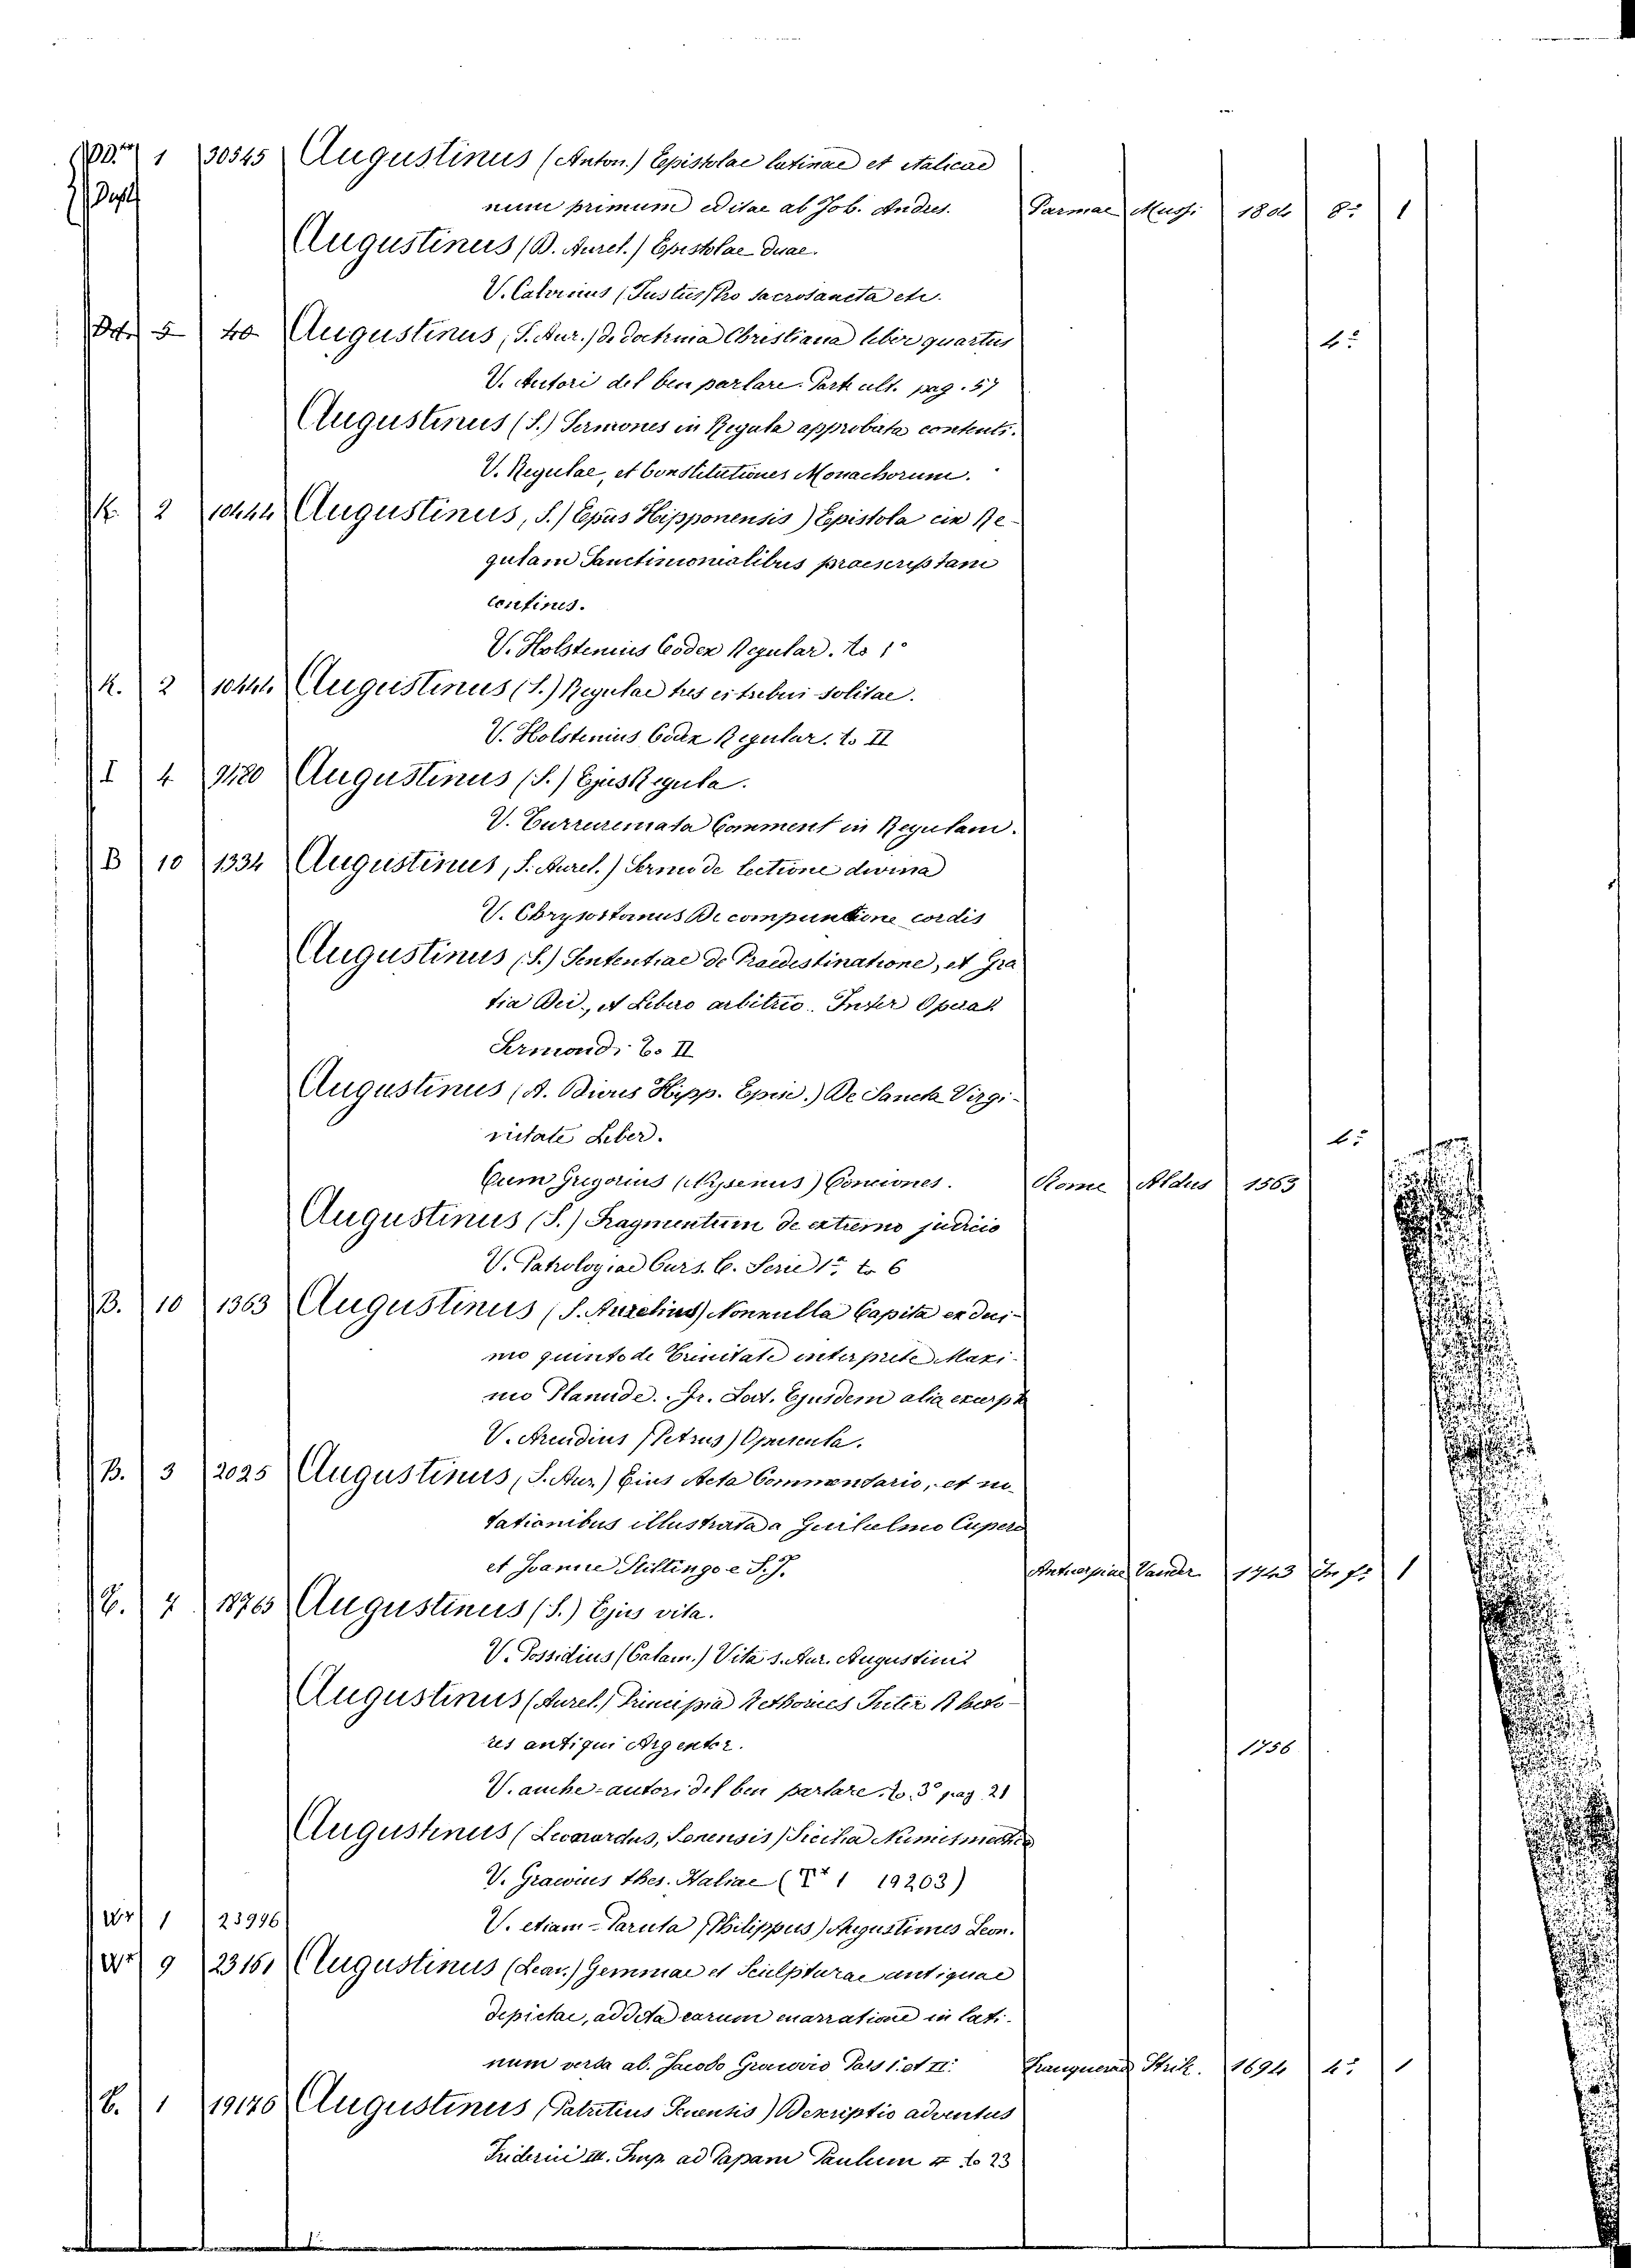 DD. 1 30545 Augustinus (Anton.) Epistolae latinae et italicae
Dupl
nunc primum editae ab Job. Andres. Parmae Mussi 1804 8.° 1
Augustinus (B. Aurel.) Epistolae duae.
V. Calvinus (Justus) Pro sacrosancta etc.
5 40 Augustinus, S. Aur.) de doctrina Christiana liber quartus 4.°
V. Autori del ben parlare. Part ult. pag. 57
Augustinus (S.) Sermones in Regula approbata contenti.
V. Regulae, et Constitutiones Monachorum.
K. 2 10444 Augustinus, S.) Epus Hipponensis) Epistola in Re-
gulam Sanctimonialibus praescriptam
continens.
V. Holstenius Codex Regular. to 1°
K. 2 10444 Augustinus (S.) Regulae tres ei tribui solitae.
V. Holstenius Codex Regular. to II
I 4 9480 Augustinus (S.) Ejus Regula.
V. Turrecremata Comment in Regulam.
B 10 1334 Augustinus, S. Aurel.) Sermo de lectione divina
V. Chrysostomus De compunctione cordis
Augustinus (S.) Sententiae de Praedestinatione, et Gra
tia Dei, et Libero arbitrio. Inter Opera
Sirmondi to II
Augustinus (A. Divus Hipp. Epis.) De Sancta Virgi-
nitate Liber. 4.°
Cum Gregorius (Nyssenus) Conciones. Rome Aldus 1563
Augustinus (S.) Fragmentum de extremo judicio
V. Patrologiae Curs. C. Serie 1.ª to 6
B. 10 1363 Augustinus (S. Aurelius) Nonnulla Capita ex deci-
mo quinto de Trinitate interprete Maxi-
mo Planude. Gr. Lat. Ejusdem alia excerpta
V. Arcudius (Petrus) Opuscula.
B. 3 2025 Augustinus, S. Aur.) Eius Acta Commendario, et no-
tationibus illustrata a Guilielmo Cupero
et Joanne Stiltingo e S.J. Antuerpiae Vander 1743 In f.° 1
T. 7 18765 Augustinus (S.) Ejus vita.
V. Possidius (Calam.) Vita s. Aur. Augustini
Augustinus (Aurel.) Principia Rethorices Inter Rheto-
res antiqui Argentor. 1756
V. anche = autori del ben parlare. to. 3° pag. 21
Augustinus (Leonardus, Senensis) Sicilia Numismatica
V. Graevius thes. Italiae (T* 1 19203)
1 23996 V. etiam = Paruta (Philippus) Augustinus Leon.
9 23161 Augustinus (Lear.) Gemmae et Sculpturae antiquae
depictae, addita earum enarratione in lati-
num versa ab. Jacobo Gronovio Pars I. et II. Franquerae Strik. 1694 4.° 1
T. 1 19176 Augustinus (Patritius Senensis) Descriptio adventus
Friderici III. Imp. ad Papam Paulum II to 23